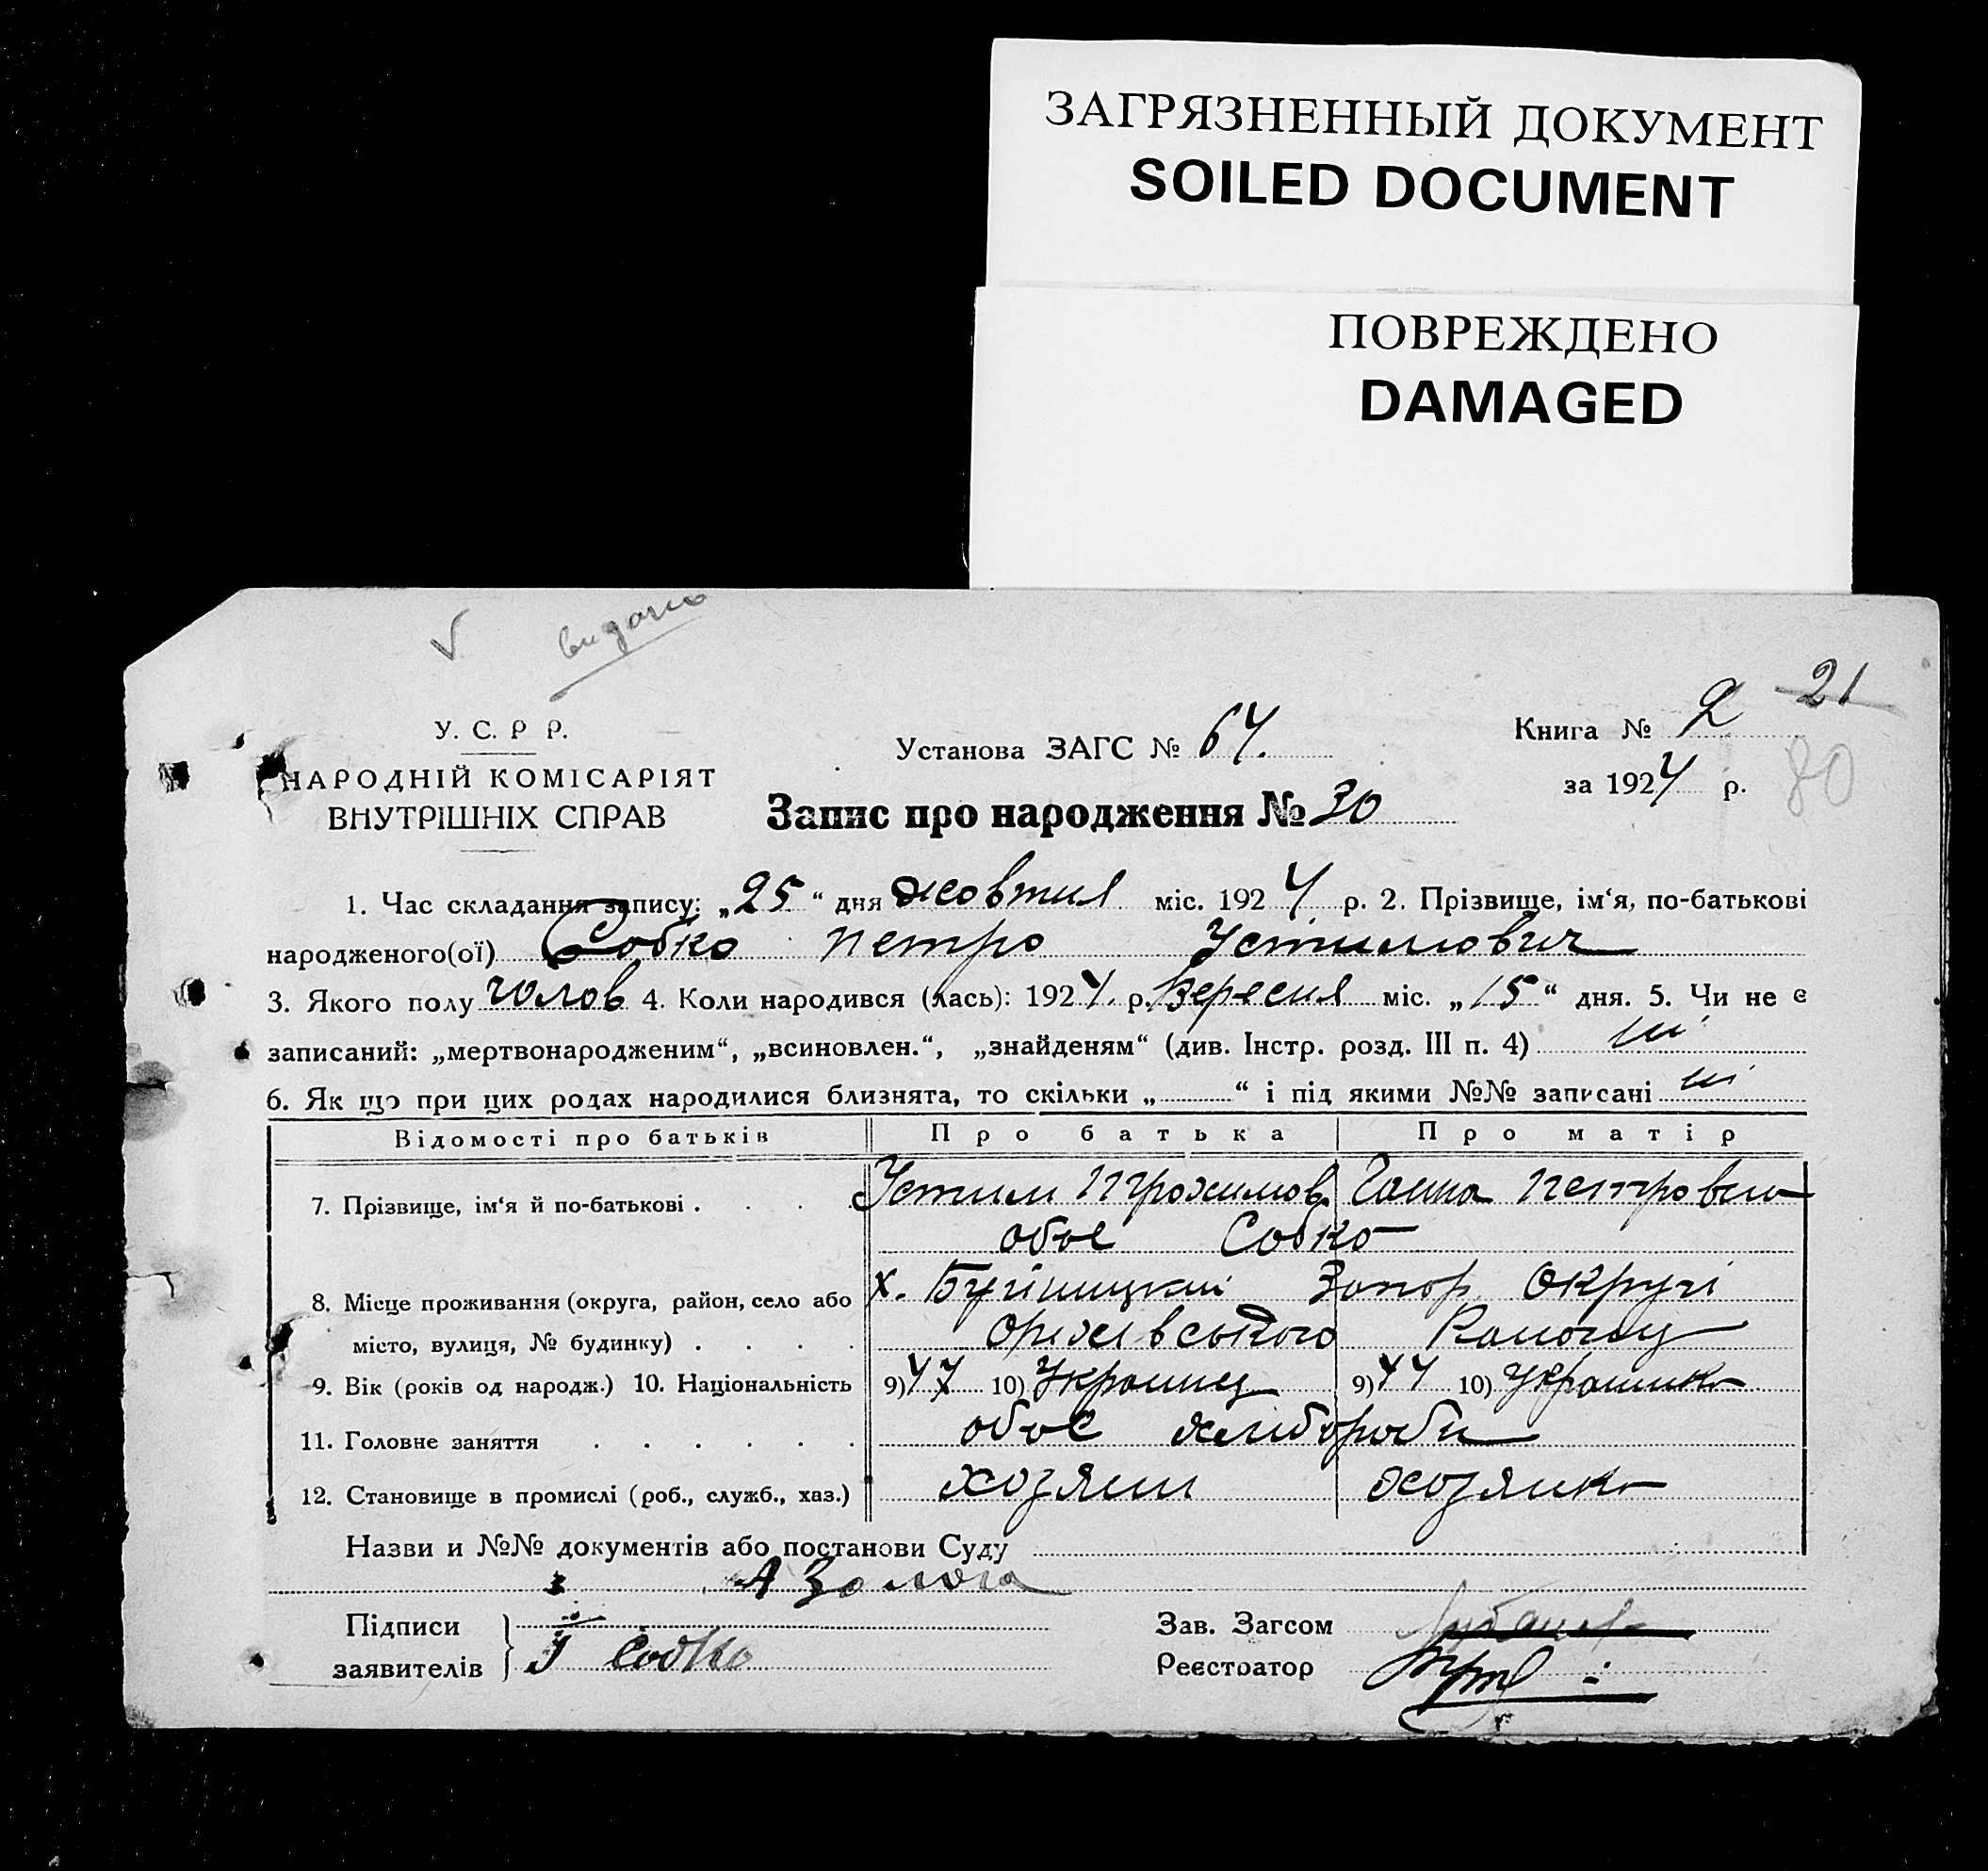 ЗАГРЯЗНЕННЫЙ ДОКУМЕНТ
SOILED DOCUMENT
ПОВРЕЖДЕНО
DAMAGED
видано
21
У. С. Р Р.
НАРОДНІЙ КОМІСАРІЯТ
ВНУТРІШНІХ СПРАВ
Установа ЗАГС № 64.
Книга № 2
за 1924 р.
80
Запис про народження № 30
1. Час складання запису: „25“ дня жовтня міс. 1924 р. 2. Прізвище, ім‘я, по-батькові
народженого(ої) Собко Петро Устимович
3. Якого полу чолов 4. Коли народився (лась): 1924. р. Вересня міс. „15“ дня. 5. Чи не є
записаний: „мертвонародженим“, „всиновлен.“, „знайденям“ (див. Інстр. розд. III п. 4) ні
6. Як що при цих родах народилися близнята, то скільки „ “ і під якими №№ записані ні
Відомості про батьків Про батька Про матір
7. Прізвище, ім‘я й по-батькові . . . . Устим Трохимов Ганна Петровна
обоє Собко
8. Місце проживання (округа, район, село або х. Запор. Округі
місто, вулиця, № будинку) . . . . Оріхівського Району
9. Вік (років од народж.) 10. Національність 9) 47 10) Українец 9) 44 10) Українка
11. Головне заняття . . . . . . обоє хлібороби
12. Становище в промислі (роб., служб., хаз.) хозяин хозяйка
Назви и №№ документів або постанови Суду
Підписи
заявителів
Собко
Зав. Загсом
Реєстратор